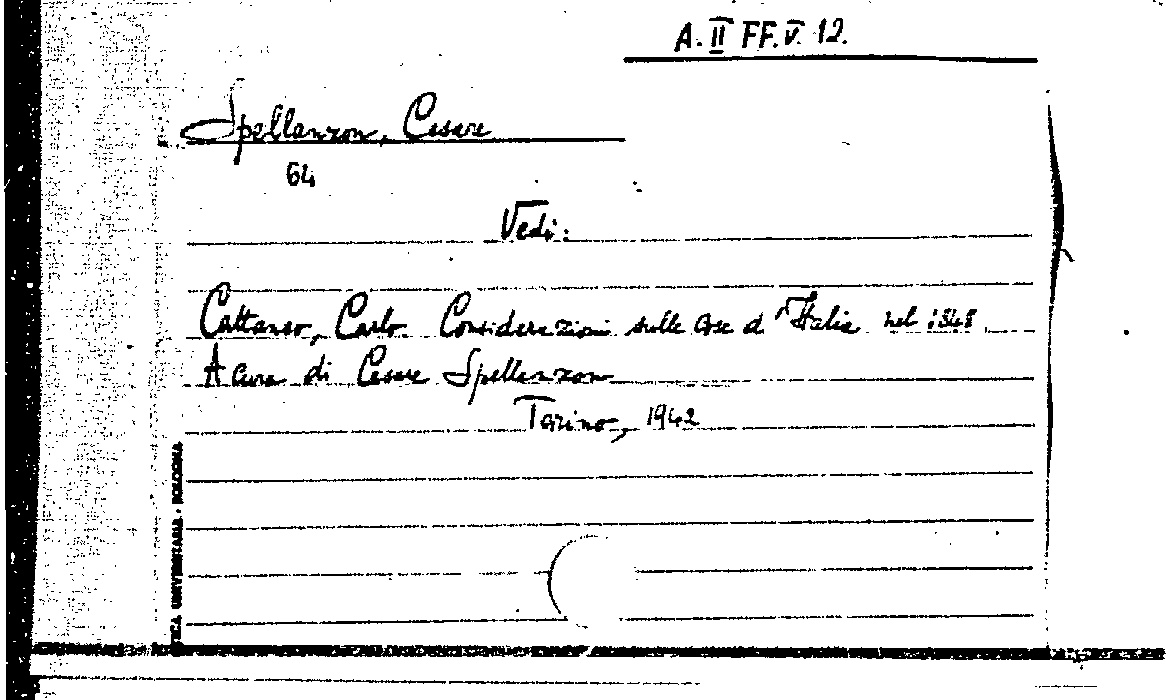 A. II FF. V. 12.
Spellanzon, Cesare
64
Vedi:
Cattaneo, Carlo. Considerazioni sulle cose d'Italia nel 1848
A cura di Cesare Spellanzon
Torino, 1942
TECA UNIVERSITARIA - BOLOGNA